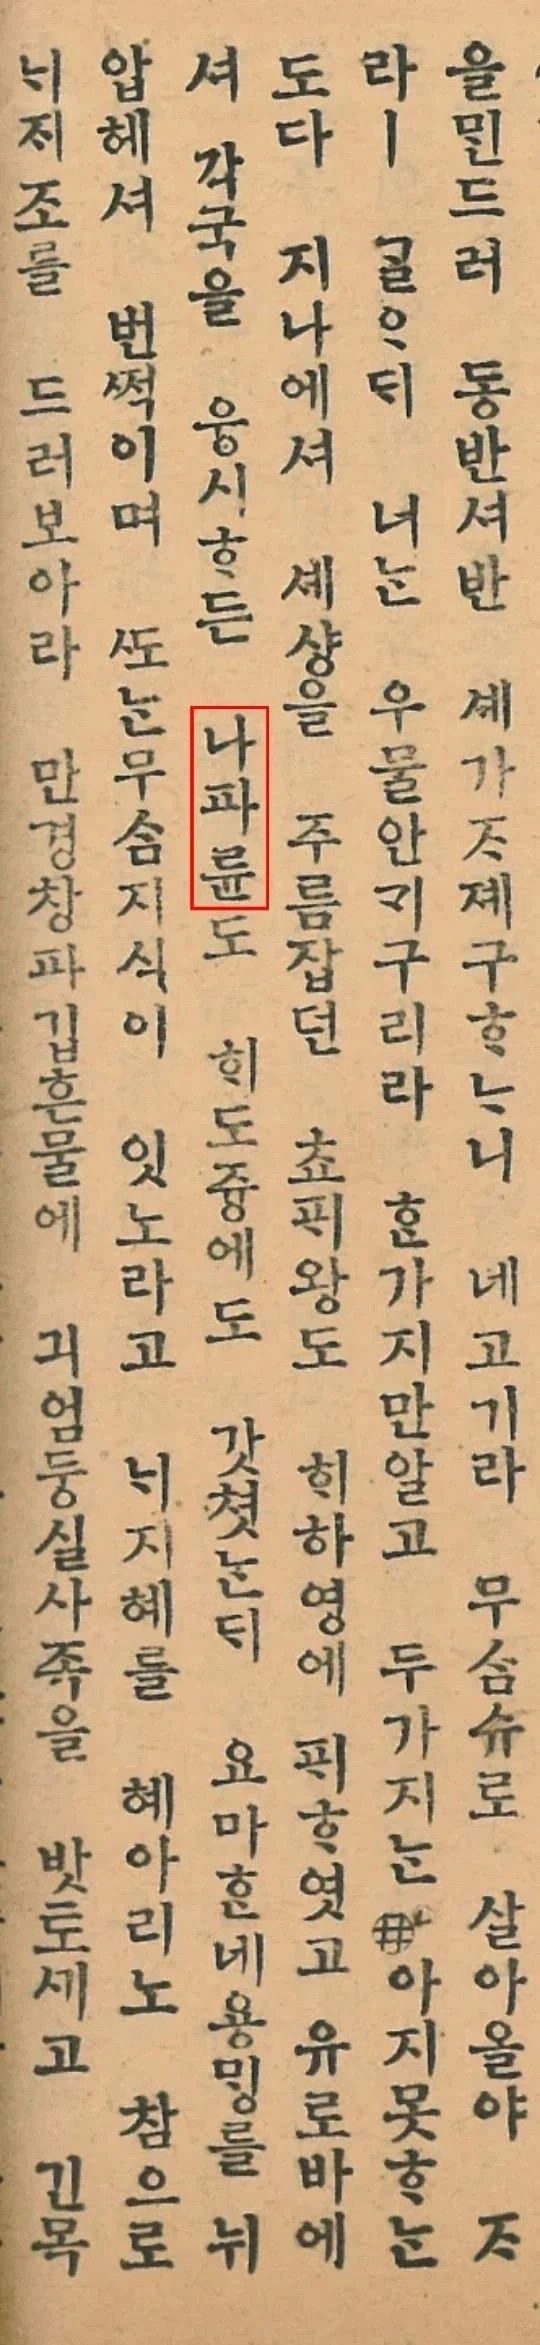 을민드러 동반셔반 셰가ᄌᆞ졔구ᄒᆞᄂᆞ니 네고기라 무ᄉᆞᆷ슈로 살아올야 ᄌᆞ
라ㅣ ᄀᆞᆯᄋᆞᄃᆡ 너ᄂᆞᆫ 우물안ᄀᆡ구리라 ᄒᆞᆫ가지만알고 두가지ᄂᆞᆫ 아지못ᄒᆞᄂᆞᆫ
도다 지나에셔 셰샹을 주름잡던 쵸ᄑᆡ왕도 ᄒᆡ하영에 ᄑᆡᄒᆞ엿고 유로바에
셔 각국을 웅시ᄒᆞ든 나파륜도 ᄒᆡ도즁에도 갓쳣ᄂᆞᆫᄃᆡ 요마ᄒᆞᆫ네용ᄆᆡᆼ를 뉘
압헤셔 번쩍이며 ᄯᅩᄂᆞᆫ무ᄉᆞᆷ지식이 잇노라고 ᄂᆡ지혜를 혜아리노 참으로
ᄂᆡᄌᆡ조를 드러보아라 만경창파깁흔물에 긔엄둥실사죡을 밧도세고 긴목